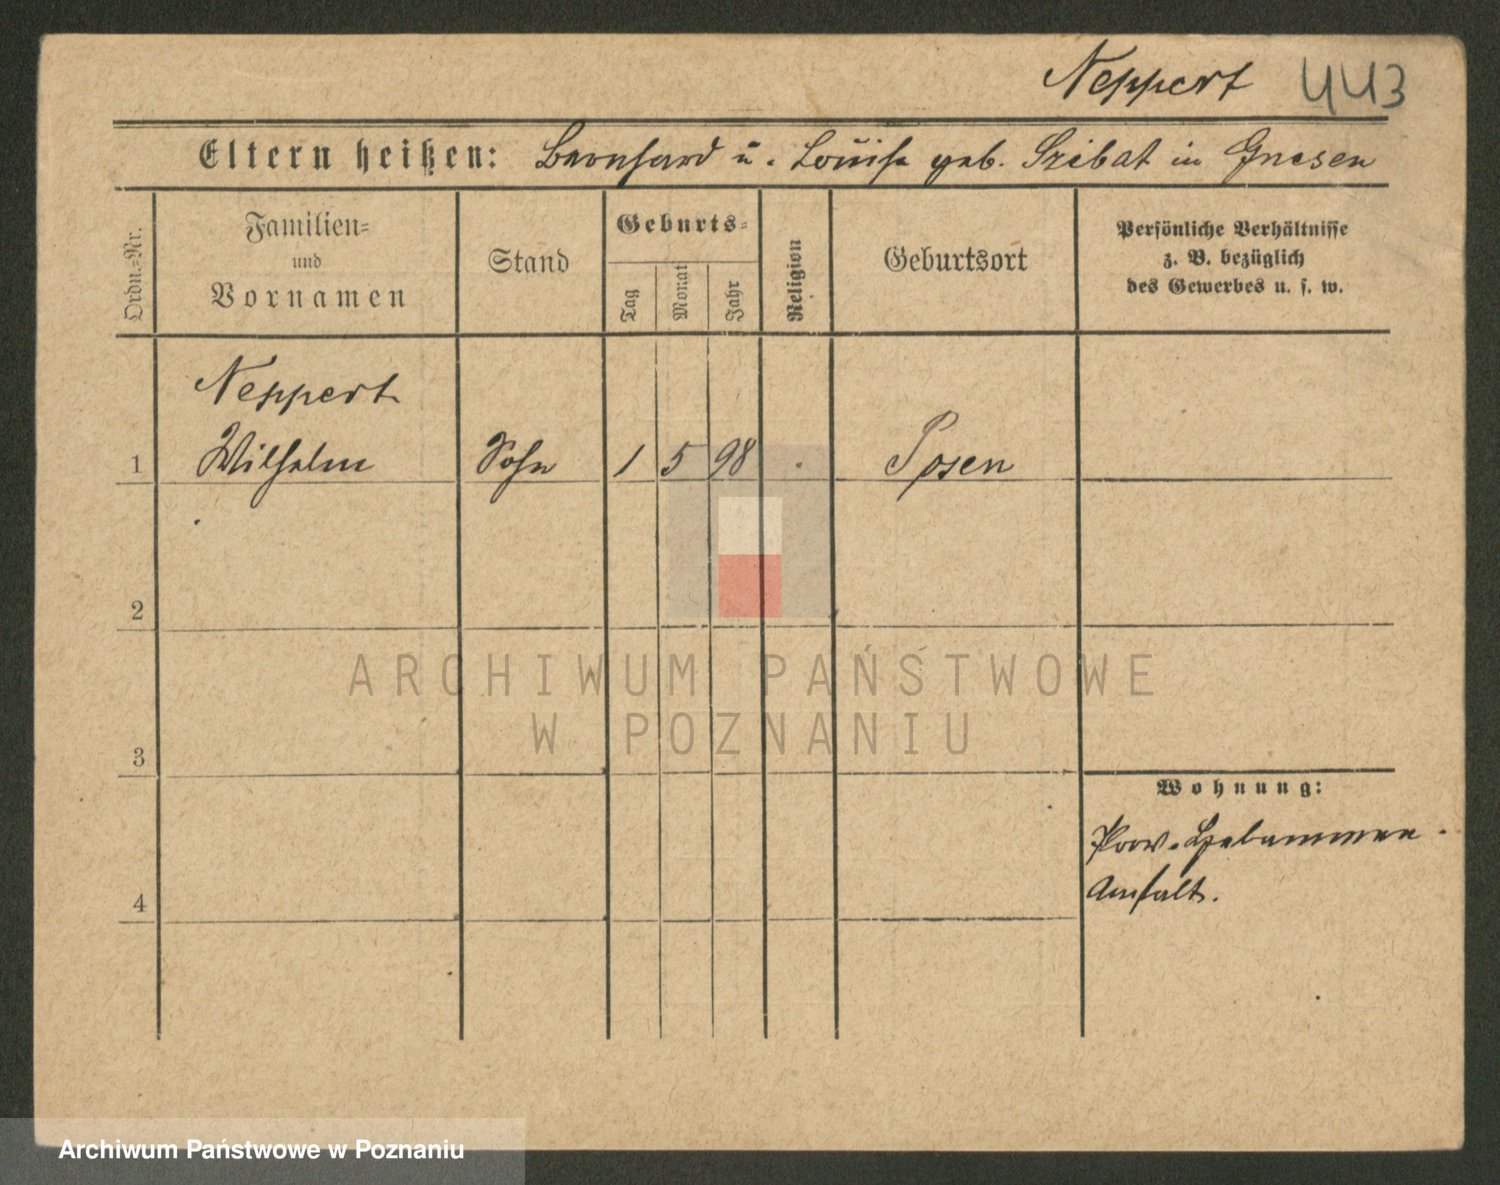 Neppert 443
Eltern heißen: Bernhard u. Louise geb. Szibat in Gnesen
Ordn.-Nr.
Familien-
und
Vornamen
Stand
Geburts-
Tag
Monat
Jahr
Religion
Geburtsort
Persönliche Verhältnisse
z. B. bezüglich
des Gewerbes u. s. w.
Neppert
1 Wilhelm Sohn 1 5 98 Posen
2
ARCHIWUM PAŃSTWOWE
W POZNANIU
3
Wohnung:
Prov. Hebammen
Anstalt.
4
Archiwum Państwowe w Poznaniu